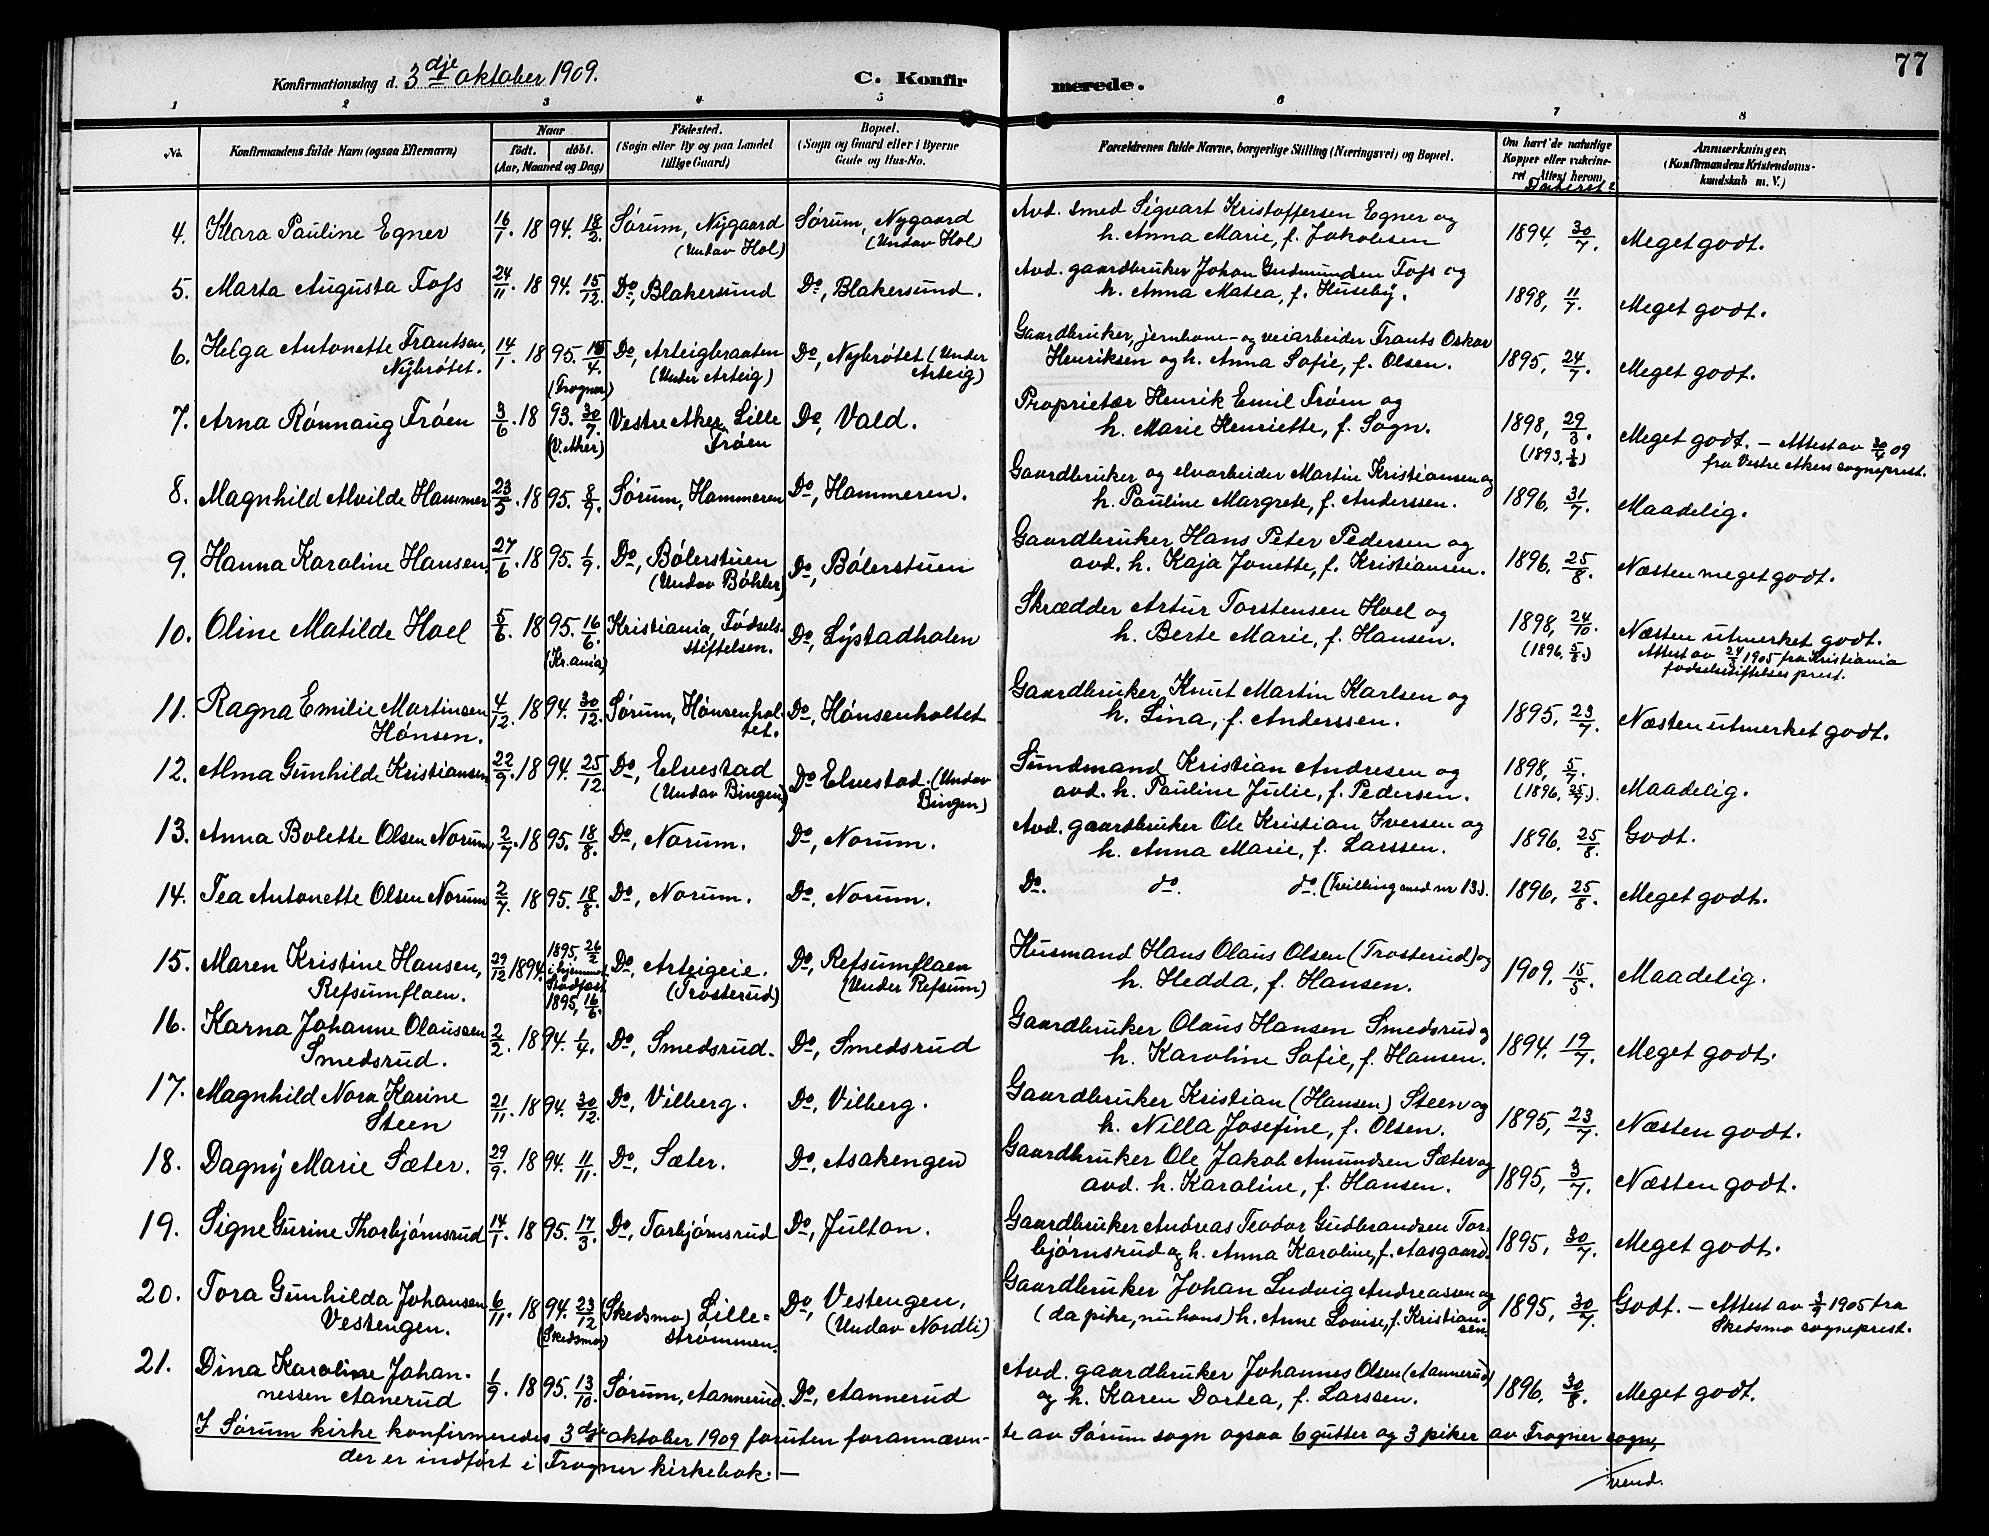 77
Konfirmationsdag d. 3dje oktober 1909. C. Konfirmerede.
1 2 3 4 5 6 7 8
No. Konfirmandens fulde Navn (ogsaa Efternavn) Naar født. døbt. (Aar, Maaned og Dag) Fødested. (Sogn eller By og paa Landet tillige Gaard) Bopæl. (Sogn og Gaard eller i Byerne Gade og Hus-No. Forældrenes fulde Navne, borgerlige Stilling (Næringsvei) og Bopæl. Om havt de naturlige Kopper eller vakcineret. Attest herom, Anmærkninger. (Konfirmandens Kristendomskundskab m. V.)
4. Klara Pauline Egner 16/1. 18 94. 18/2. Sørum, Nygaard Sørum, Nygaard Avd. smed Sigvart Kristoffersen Egner og
(Undav Hol) (Undav Hol) h. Anna Marie, f. Jakobsen 1894, 30/7. Meget godt.
5. Marta Augusta Foss 24/11. 18 94. 15/12. Do, Blakersund Do, Blakersund. Avd. gaardbruker Johan Gudmunden Foss og
h. Anna Matea, f. Huseby. 1898, 11/7. Meget godt.
6. Helga Antonette Frantsen, 14/1. 18 95. 15/4. Do, Arteigbraaten Do, Nybrøtet (Under Gaardbruker, jernbane- og veiarbeider Frants Oskar
Nybrøtet. (Frogner) (Under Arteig) Arteig) Henriksen og h. Anna Sofie, f. Olsen. 1895, 24/7. Meget godt.
7. Arna Rønnaug Frøen 3/6. 18 93. 30/7. Vestre Aker, Lille Do, Vald. Proprietær Henrik Emil Frøen og
(V. Aker) Frøen h. Marie Henriette, f. Sogn. 1898, 29/3. Meget godt. – Attest av 30/4 09
(1893, 3/6) fra Vestre Akers sogneprest.
8. Magnhild Alvilde Hammer 23/5. 18 95. 8/9. Sørum, Hammeren Do, Hammeren. Gaardbruker og elvarbeider Martin Kristiansen og
h. Pauline Margrete, f. Anderssen. 1896, 31/7. Maadelig.
9. Hanna Karoline Hansen 27/6. 18 95. 1/9. Do, Bølerstuen Do, Bølerstuen Gaardbruker Hans Peter Pedersen og
(Undav Bøhler) avd. h. Kaja Jonette, f. Kristiansen. 1896. 25/8. Næsten meget godt.
10. Oline Matilde Hoel 5/6. 18 95. 16/6. Kristiania, Fødsels- Do, Lystadholen Skrædder Artur Torstensen Hoel og
(Kr.ania) stiftelsen. h. Berte Marie, f. Hansen. 1898, 24/10. Næsten utmerket godt.
(1896, 5/8.) Attest av 24/3 1905 fra Kristiania
fødselsstiftelses prest.
11. Ragna Emilie Martinsen 4/12. 18 94. 30/12. Sørum, Hønsenhol- Do, Hønsenholtet Gaardbruker Knut Martin Karlsen og
Hønsen. tet. h. Lina, f. Anderssen. 1895, 23/7. Næsten utmerket godt.
12. Alma Gunhilde Kristiansen 22/9. 18 94. 25/12. Do, Elvestad Do Elvestad. (Undav Sundmand Kristian Andresen og 1898, 5/7.
(Undav Bingen) Bingen) avd. h. Pauline Julie, f. Pedersen. (1896, 25/7.). Maadelig.
13. Anna Bolette Olsen Norum 2/7. 18 95. 18/8. Do, Norum. Do, Norum. Avd. gaardbruker Ole Kristian Iversen og
h. Anna Marie, f. Larssen. 1896. 25/8. Godt.
14. Tea Antonette Olsen Norum 2/7. 18 95. 18/8. Do, Norum. Do, Norum. Do. do. do. (Tvilling med nr 13). 1896, 25/8. Meget godt.
15. Maren Kristine Hansen, 29/12 1894. 1895, 26/2 i hjemmet Stadfæst 1895, 16/6. Do, Arteigeie. Do, Refsumflaen Husmand Hans Olaus Olsen (Trosterud) og
Refsumflaen. (Trosterud) (Under Refsum) h. Hedda, f. Hansen. 1909. 15/5. Maadelig.
16. Karna Johanne Olaussen 2/2. 18 94. 1/4. Do, Smedsrud. Do, Smedsrud Gaardbruker Olaus Hansen Smedsrud og
Smedsrud. h. Karoline Sofie, f. Hansen. 1894. 19/7. Meget godt.
17. Magnhild Nora Karine 21/11. 18 94. 30/12. Do, Vilberg. Do, Vilberg. Gaardbruker Kristian (Hansen) Steen og
Steen h. Nilla Josefine, f. Olsen. 1895, 23/7. Næsten godt.
18. Dagny Marie Sæter. 29/9. 18 94. 11/11. Do, Sæter. Do, Asakengen Gaardbruker Ole Jakob Amundsen Sæter og
avd. h. Karoline, f. Hansen. 1895, 3/7. Næsten godt.
19. Signe Gurine Thorbjørnsrud 14/1. 18 95. 17/3. Do, Torbjørnsrud Do, Julton. Gaardbruker Andreas Teodor Gudbrandsen Tor-
bjørnsrud og h. Anna Karoline, f. Aasgaard. 1895, 30/7. Meget godt.
20. Tora Gunhilda Johansen 6/11. 18 94. 23/12 (Skedsmo) Lille= Do, Vestengen, Gaardbruker Johan Ludvig Andreassen og
Vestengen. (Skedsmo) strømmen. (Undav Nordli) (da pike, nu hans) h. Anne Lovise, f. Kristiansen 1895, 30/7. Godt. – Attest av 3/9 1905 fra
Skedsmo sogneprest.
21. Dina Karoline Johan- 1/9. 18 95. 13/10. Sørum, Aannerud. Do, Aannerud Avd. gaardbruker Johannes Olsen (Aannerud)
nessen Aanerud og h. Karen Dortea, f. Larssen. 1896, 30/8. Meget godt.
I Sørum kirke konfirmeredes 3dje oktober 1909 foruten forannævn-te av Sørum sogn ogsaa 6 gutter og 3 piker av Frogner sogn,
der er indført i Frogner kirkebok. –
vend.